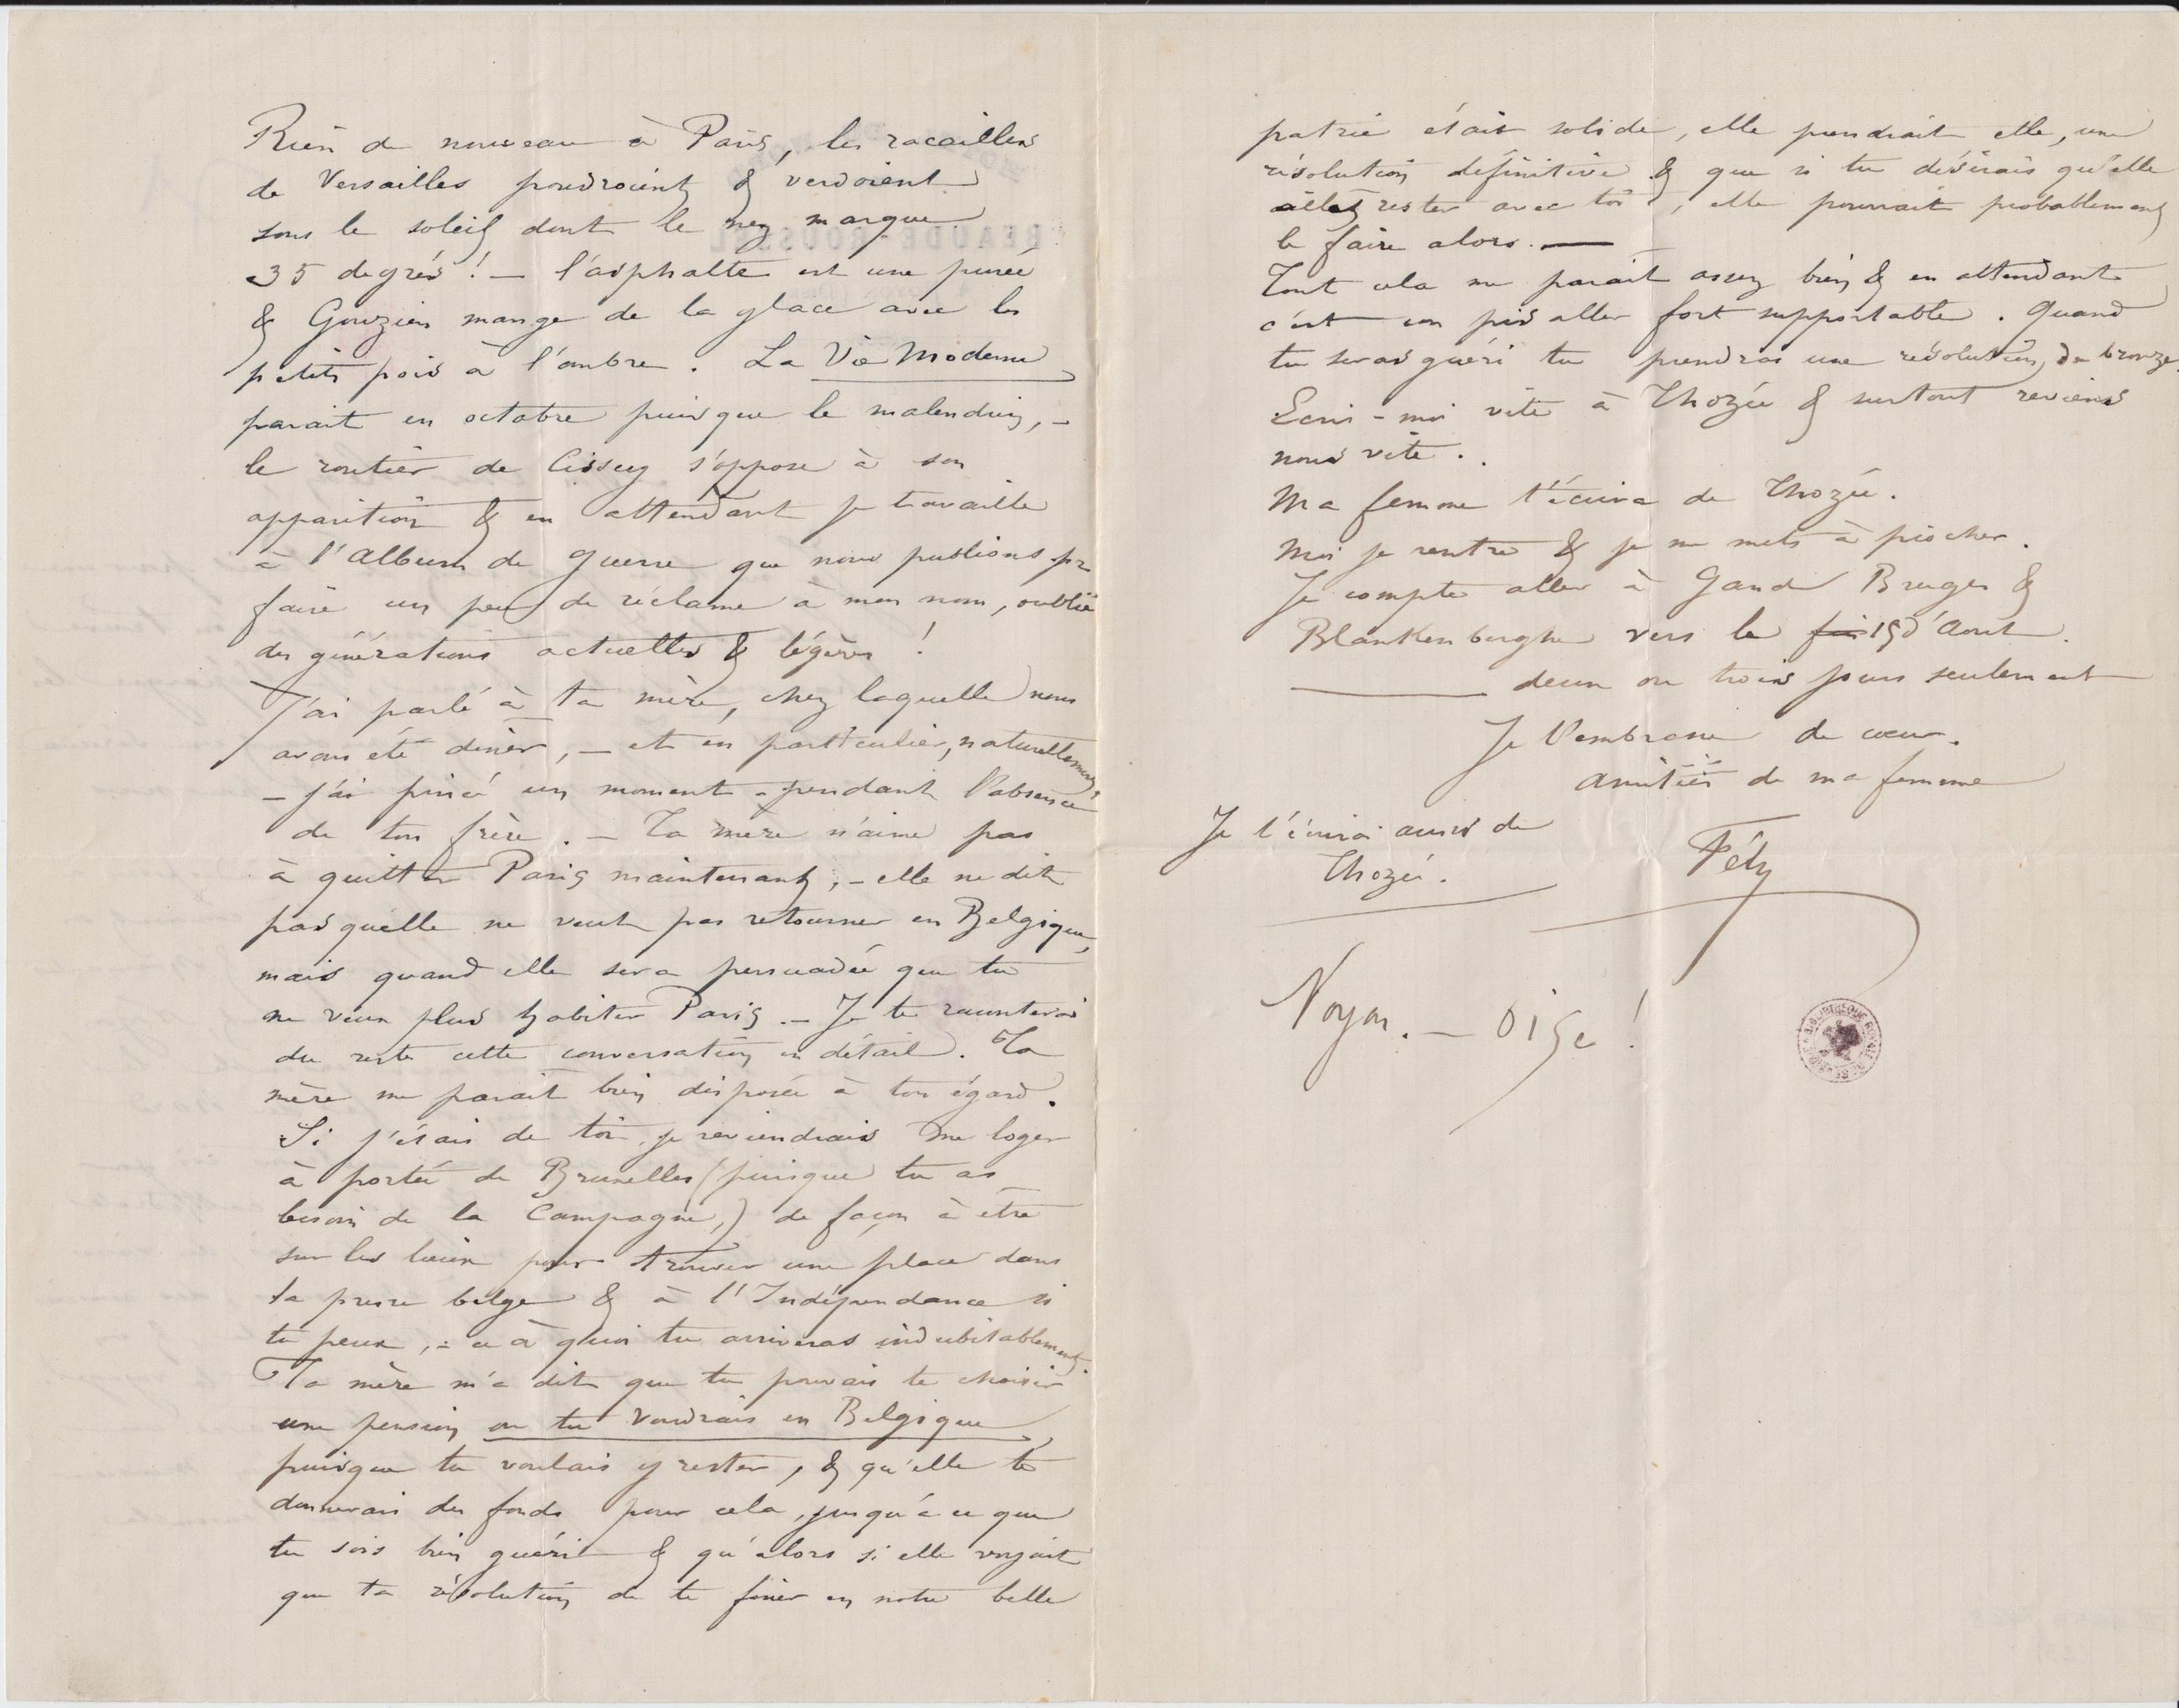 Rien de nouveau à Paris, les racailles
de Versailles poudroient & verdoient
sous le soleil dont le nez marque
35 degrés ! — l'asphalte est une purée
& Gouzien mange de la glace avec les
petits pois à l'ombre. La Vie Moderne
parait en octobre puisque le malendrin, –
le routier de Cissey s'oppose à son
apparition & en attendant je travaille
à l'Album de guerre que nous publions pr
faire un peu de réclame à mon nom, oublié
des générations actuelles & légères !
J'ai parlé à ta mère, chez laquelle nous
avons été diner, — et en particulier, naturellement
– j'ai pincé un moment – pendant l'absence
de ton frère. — Ta mère n'aime pas
à quitter Paris maintenant, – elle ne dit
pas qu'elle ne veut pas retourner en Belgique,
mais quand elle sera persuadée que tu
ne veux plus habiter Paris. — Je te raconterai
du reste cette conversation en détail. Ta
mère me parait bien disposée à ton égard.
Si j'étais de toi, je reviendrais me loger
à portée de Bruxelles (puisque tu as
besoin de la Campagne,) de façon à être
sur les lieux pour trouver une place dans
la presse belge & à l'Indépendance si
tu peux, – ce à quoi tu arriveras indubitablement.
Ta mère m'a dit que tu pouvais te choisir
une pension ou tu voudrais en Belgique,
puisque tu voulais y rester, & qu'elle te
donnerais des fonds pour cela, jusqu'à ce que
tu sois bien guéri & qu'alors si elle voyait
que ta résolution de te fixer en notre belle
patrie était solide, elle prendrait elle, une
résolution définitive & que si tu désirais qu'elle
allat rester avec toi, elle pourrait probablement
le faire alors. —
Tout cela me parait assez bien & en attendant
c'est un pis aller fort supportable. Quand
tu seras guéri tu prendras une résolution de bronze.
Ecris-moi vite à Thozée & surtout reviens
nous vite..
Ma femme t'écrira de Thozée.
Moi je rentre & je me mets à piocher.
Je compte aller à Gand Bruges &
Blankenberghe vers le fin 15 d'Aout.
— deux ou trois jours seulement
Je t'embrasse de cœur.
amitiés de ma femme
Je t'écrirai aussi de
Thozée.
Fély
Noyon. — Oise !
BIBLIOTHEQUE ROYALE